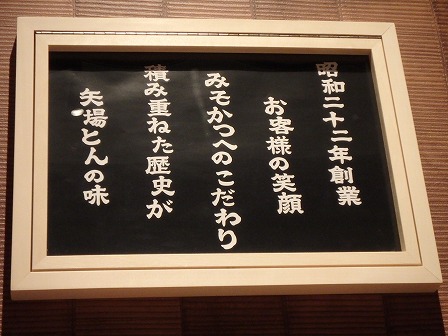 昭和二十二年創業
お客様の笑顔
みそかつへのこだわり
積み重ねた歴史が
矢場とんの味